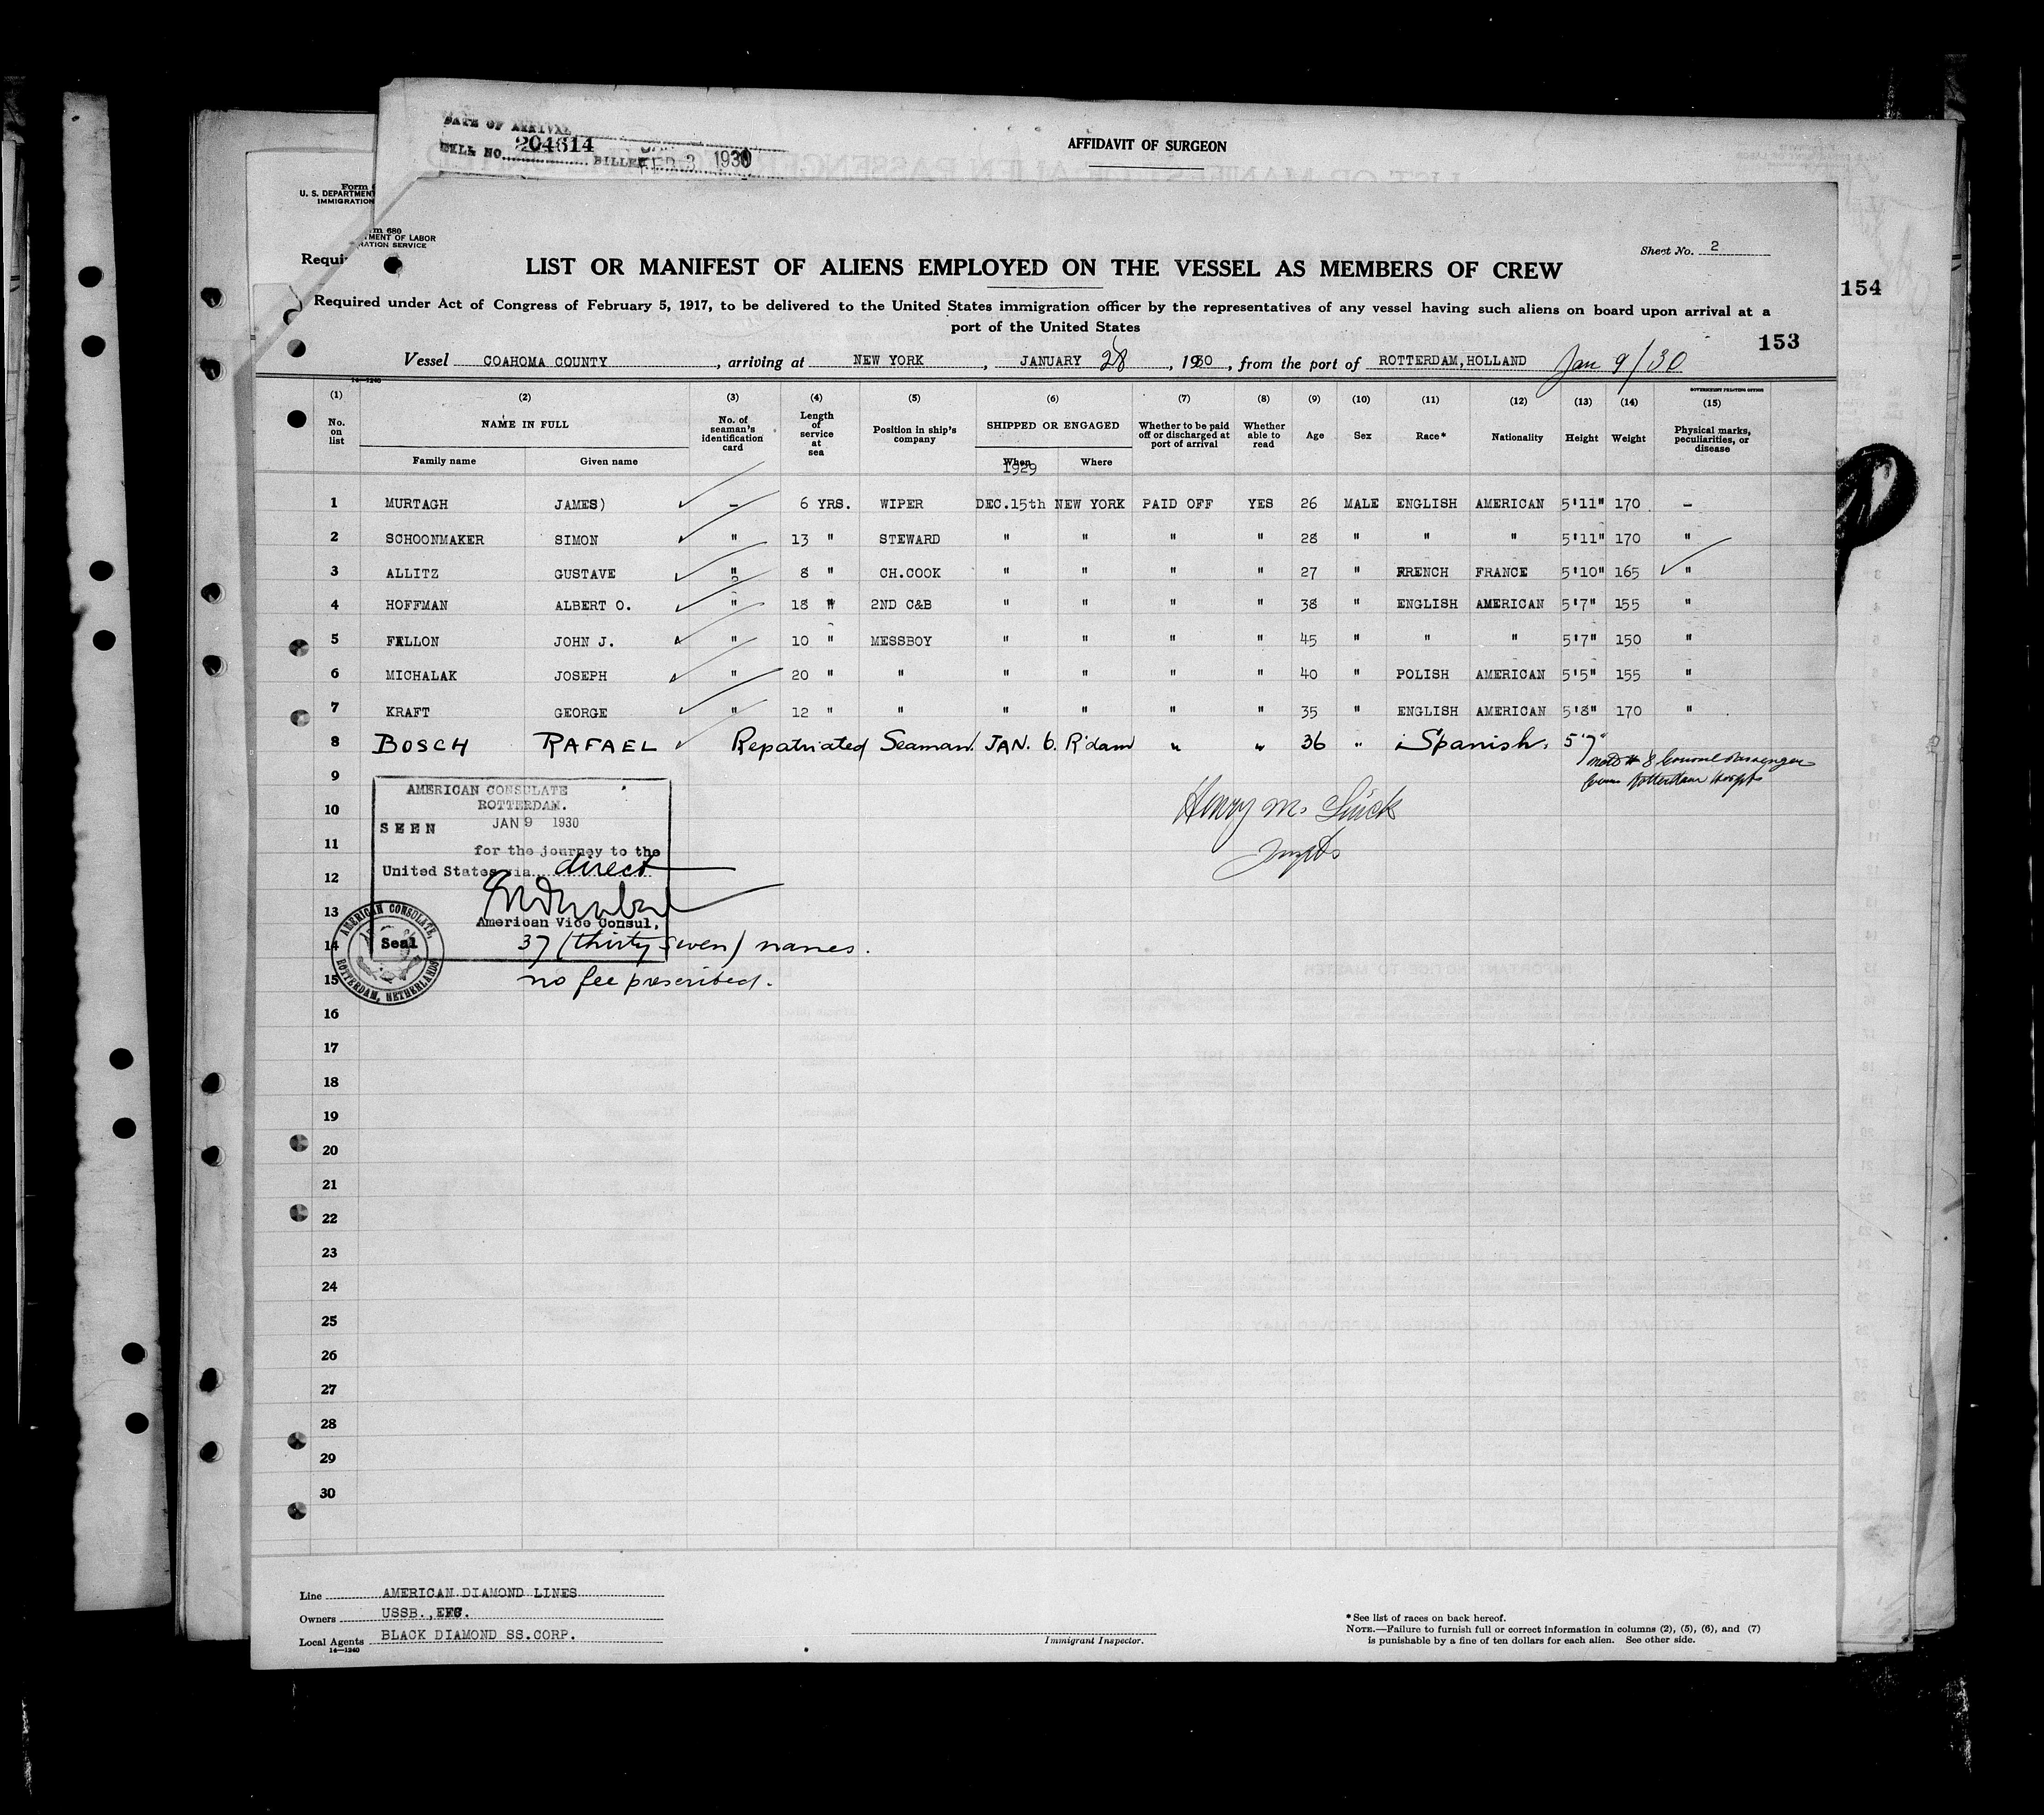 DATE OF ARRIVAL
BILL NO. 204614 BILLED FEB 3 1930
AFFIDAVIT OF SURGEON
Form 680
U. S. DEPARTMENT OF LABOR
IMMIGRATION SERVICE
Sheet No. 2
LIST OR MANIFEST OF ALIENS EMPLOYED ON THE VESSEL AS MEMBERS OF CREW
154
Required under Act of Congress of February 5, 1917, to be delivered to the United States immigration officer by the representatives of any vessel having such aliens on board upon arrival at a
port of the United States
153
Vessel COAHOMA COUNTY, arriving at NEW YORK, JANUARY 28, 1930, from the port of ROTTERDAM,HOLLAND Jan 9/30
14—1240
GOVERNMENT PRINTING OFFICE
(1) (2) (3) (4) (5) (6) (7) (8) (9) (10) (11) (12) (13) (14) (15)
No. on list NAME IN FULL No. of seaman's identification card Length of service at sea Position in ship's company SHIPPED OR ENGAGED Whether to be paid off or discharged at port of arrival Whether able to read Age Sex Race* Nationality Height Weight Physical marks, peculiarities, or disease
Family name Given name When Where
1929
1 MURTAGH JAMES) – 6 YRS. WIPER DEC.15th NEW YORK PAID OFF YES 26 MALE ENGLISH AMERICAN 5'11" 170 –
2 SCHOONMAKER SIMON " 13 " STEWARD " " " " 28 " " " 5'11" 170 "
3 ALLITZ GUSTAVE " 8 " CH.COOK " " " " 27 " FRENCH FRANCE 5'10" 165 "
4 HOFFMAN ALBERT O. " 18 " 2ND C&B " " " " 38 " ENGLISH AMERICAN 5'7" 155 "
5 FALLON JOHN J. " 10 " MESSBOY " " " " 45 " " " 5'7" 150 "
6 MICHALAK JOSEPH " 20 " " " " " " 40 " POLISH AMERICAN 5'5" 155 "
7 KRAFT GEORGE " 12 " " " " " " 35 " ENGLISH AMERICAN 5'8" 170 "
8 BOSCH RAFAEL Repatriated Seaman. JAN. 6. R'dam " " 36 " Spanish. 5'7"
note # 8 Consul Passenger
from Rotterdam Hospt
9
10
11
12
13
14
15
16
17
18
19
20
21
22
23
24
25
26
27
28
29
30
AMERICAN CONSULATE
ROTTERDAM.
SEEN JAN 9 1930
for the journey to the
United States via direct
American Vice Consul.
37 (thirty seven) names.
no fee prescribed.
AMERICAN CONSULATE, ROTTERDAM, NETHERLANDS
Seal
Henry M.
Inspt
Line AMERICAN DIAMOND LINES
Owners USSB.,EFC.
Local Agents BLACK DIAMOND SS.CORP.
14—1240
Immigrant Inspector.
*See list of races on back hereof.
NOTE.—Failure to furnish full or correct information in columns (2), (5), (6), and (7)
is punishable by a fine of ten dollars for each alien. See other side.